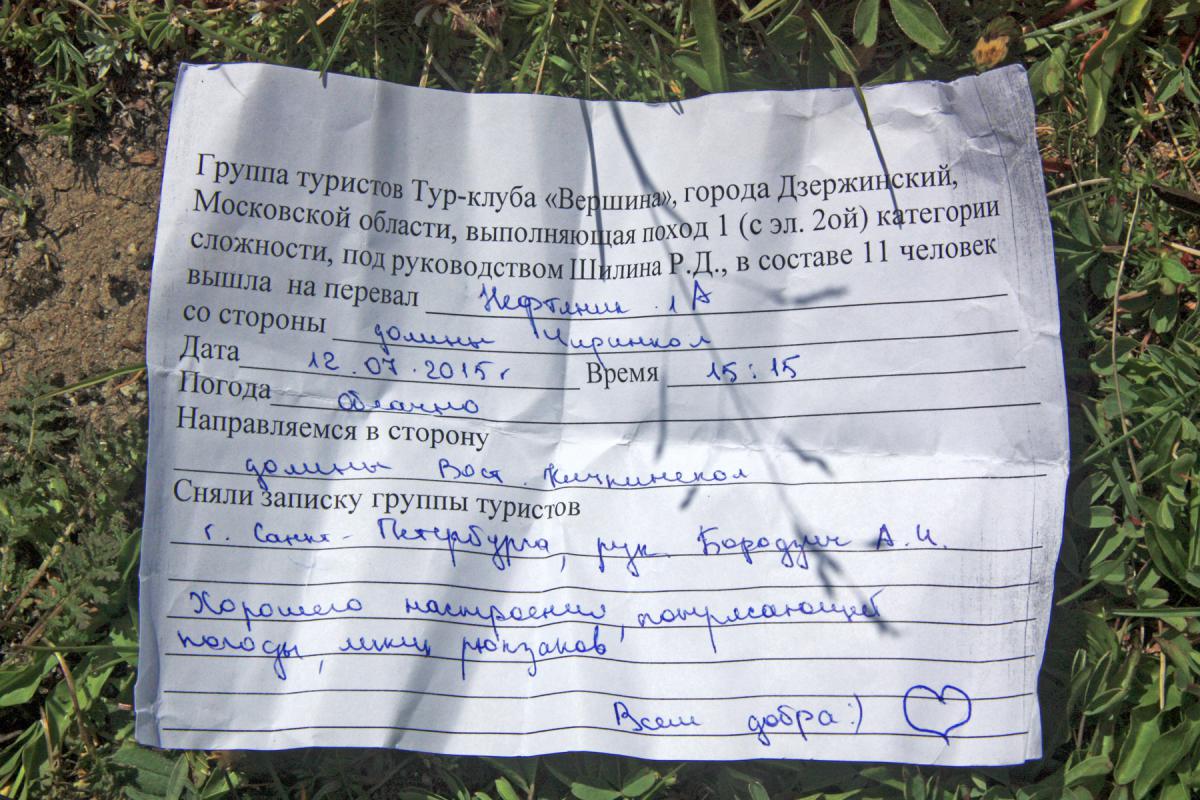 Группа туристов Тур-клуба «Вершина», города Дзержинский,
Московской области, выполняющая поход 1 (с эл. 2ой) категории
сложности, под руководством Шилина Р.Д., в составе 11 человек
вышла на перевал Нефтяник 1А
со стороны долины Чиринкол
Дата 12.07.2015г Время 15:15
Погода Облачно
Направляемся в сторону
долины Вост. Кичкинекол
Сняли записку группы туристов
г. Санкт-Петербурга, рук. Бородин А.И.
Хорошего настроения, потрясающей
погоды, легких рюкзаков
Всем добра:)